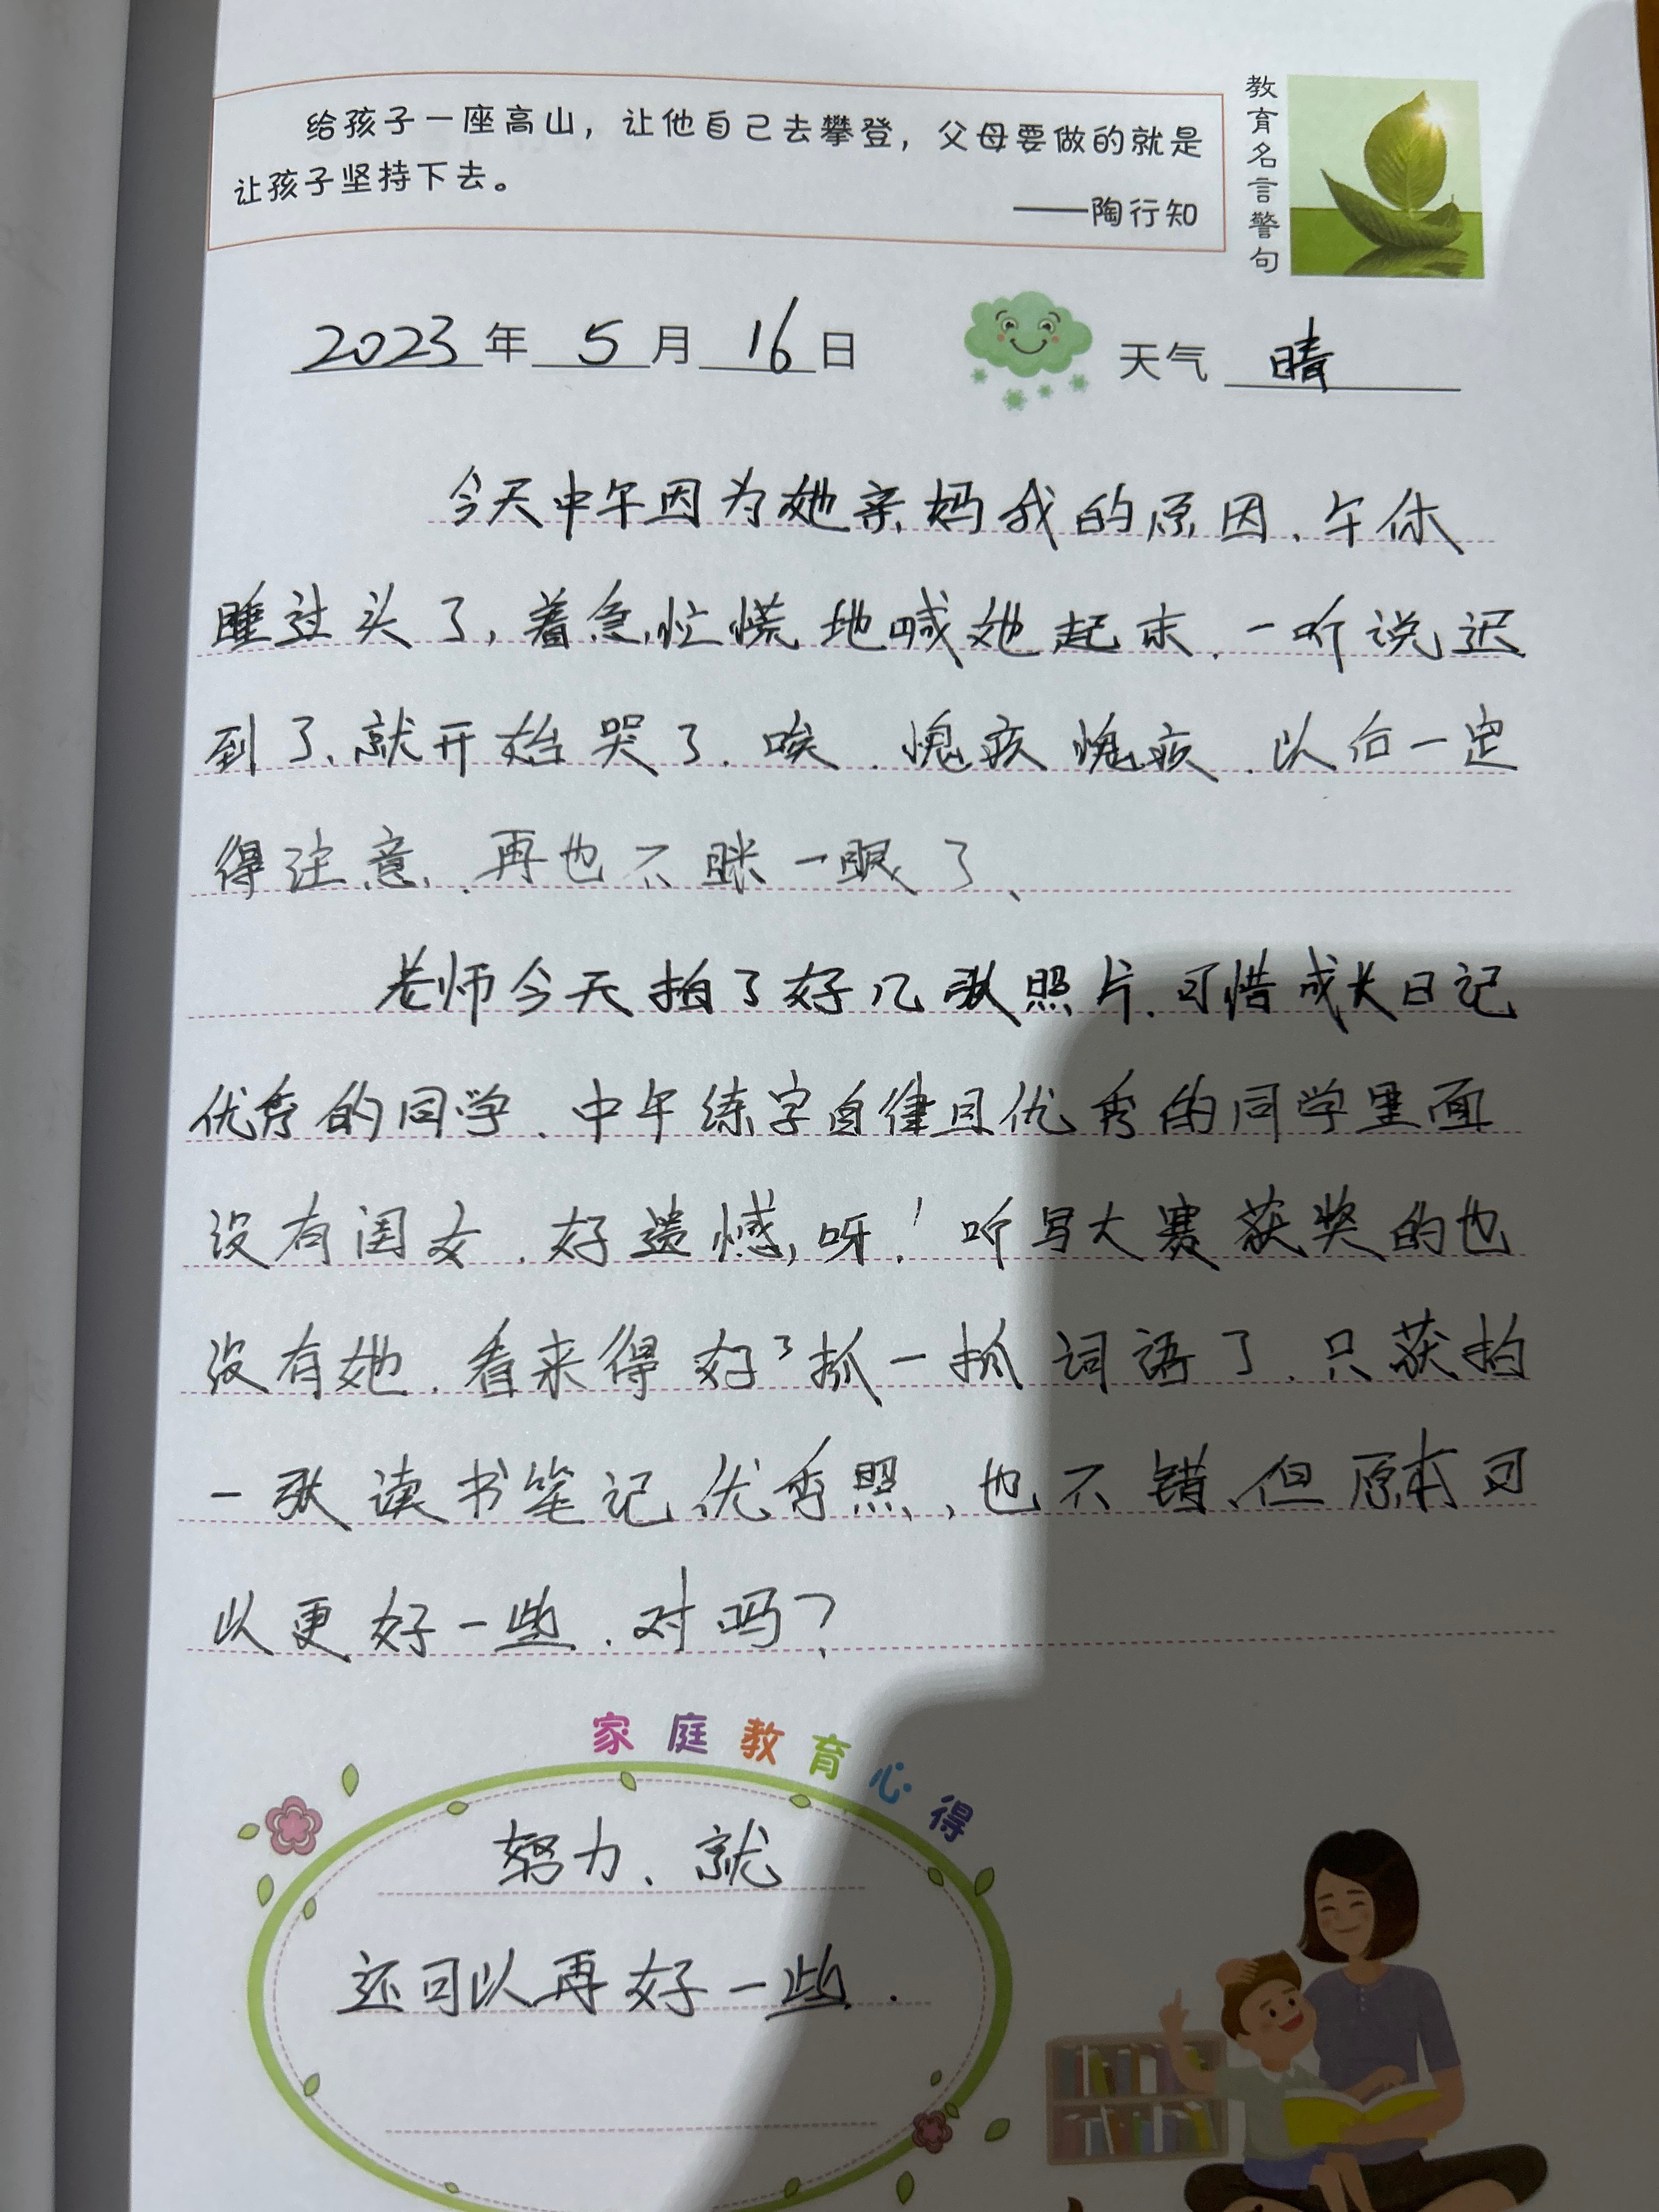 给孩子一座高山，让他自己去攀登，父母要做的就是
让孩子坚持下去。
——陶行知
教育名言警句
2023年5月16日 天气 晴
今天中午因为她亲妈我的原因、午休
睡过头了,着急忙慌地喊她起来.一听说迟
到了、就开始哭了.唉.愧疚愧疚.以后一定
得注意.再也不眯一眼了、
老师今天拍了好几张照片.可惜成长日记
优秀的同学.中午练字自律且优秀的同学里面
没有闺女.好遗憾呀!听写大赛获奖的也
没有她.看来得好好抓一抓词语了.只获拍
一张读书笔记优秀照,也不错、但原本可
以更好一些.对吗?
家庭教育心得
努力、就
还可以再好一些.